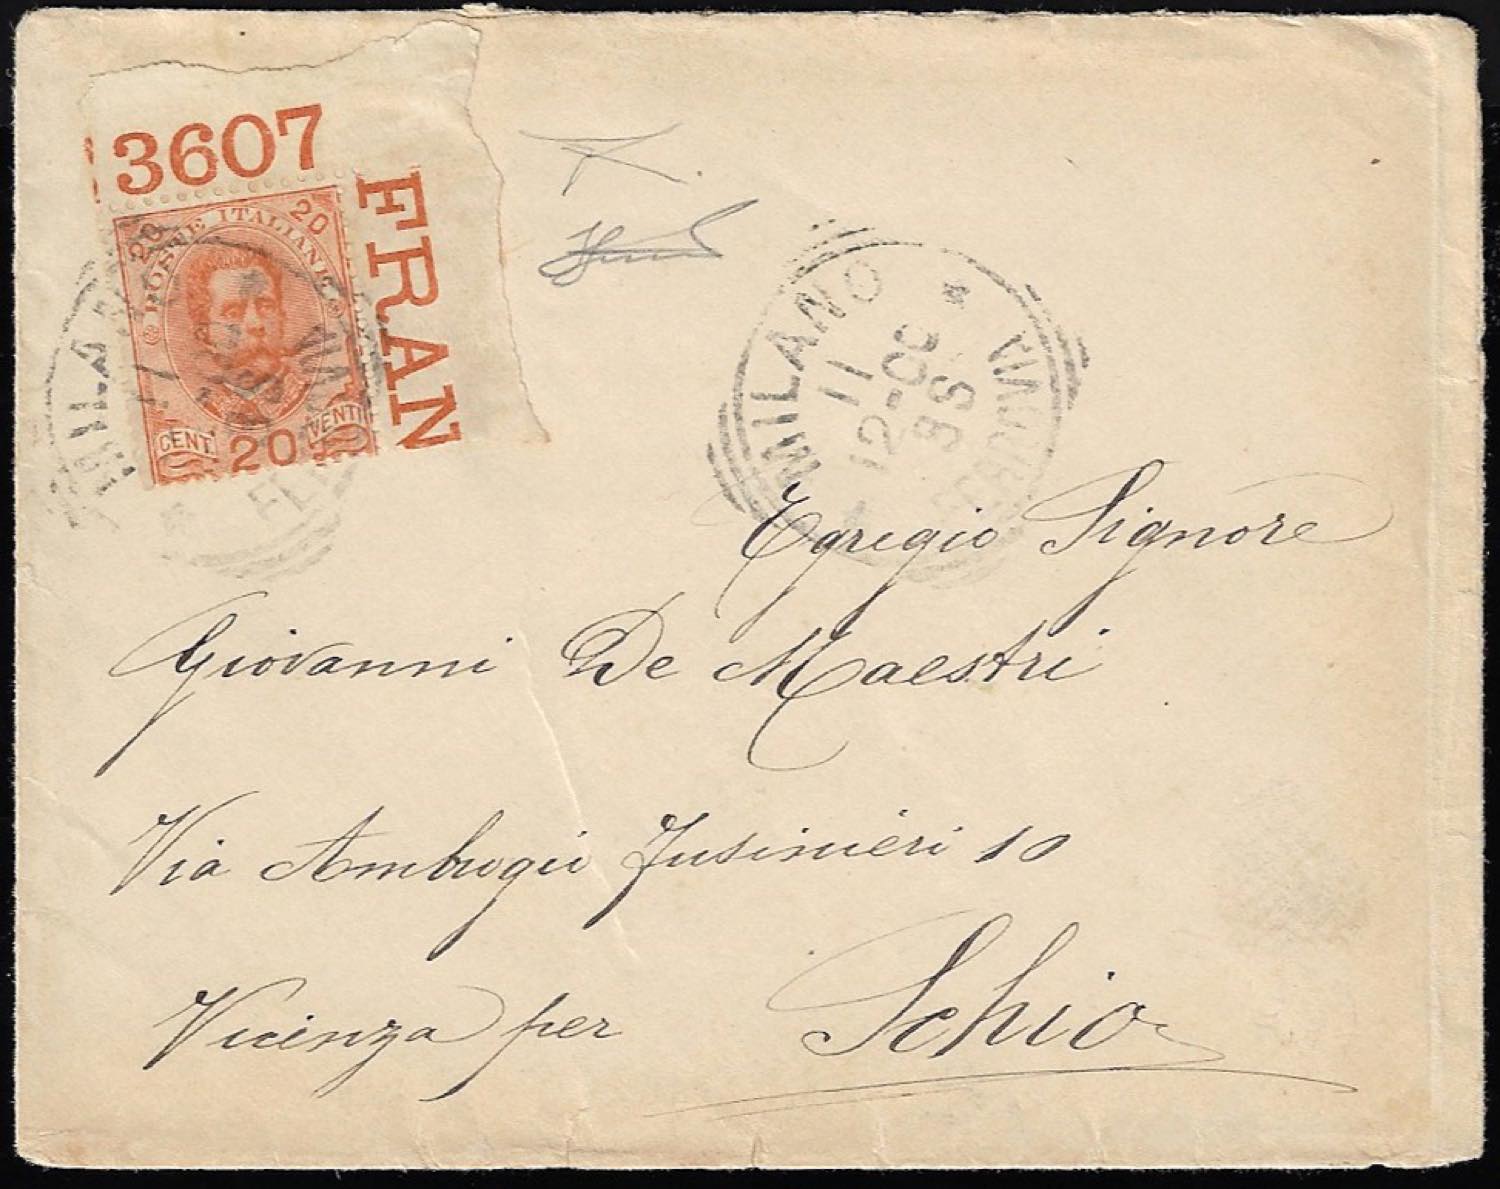 3607
FRAN
POSTE ITALIANE
20 20
CENT. 20 VENTI
MILANO
11
12-OC
95
FERROVIA
MILANO
11
12-OC
95
FERROVIA
Egregio Signore
Giovanni De Maestri
Via Ambrogii Fusinieri 10
Vicenza per Schio